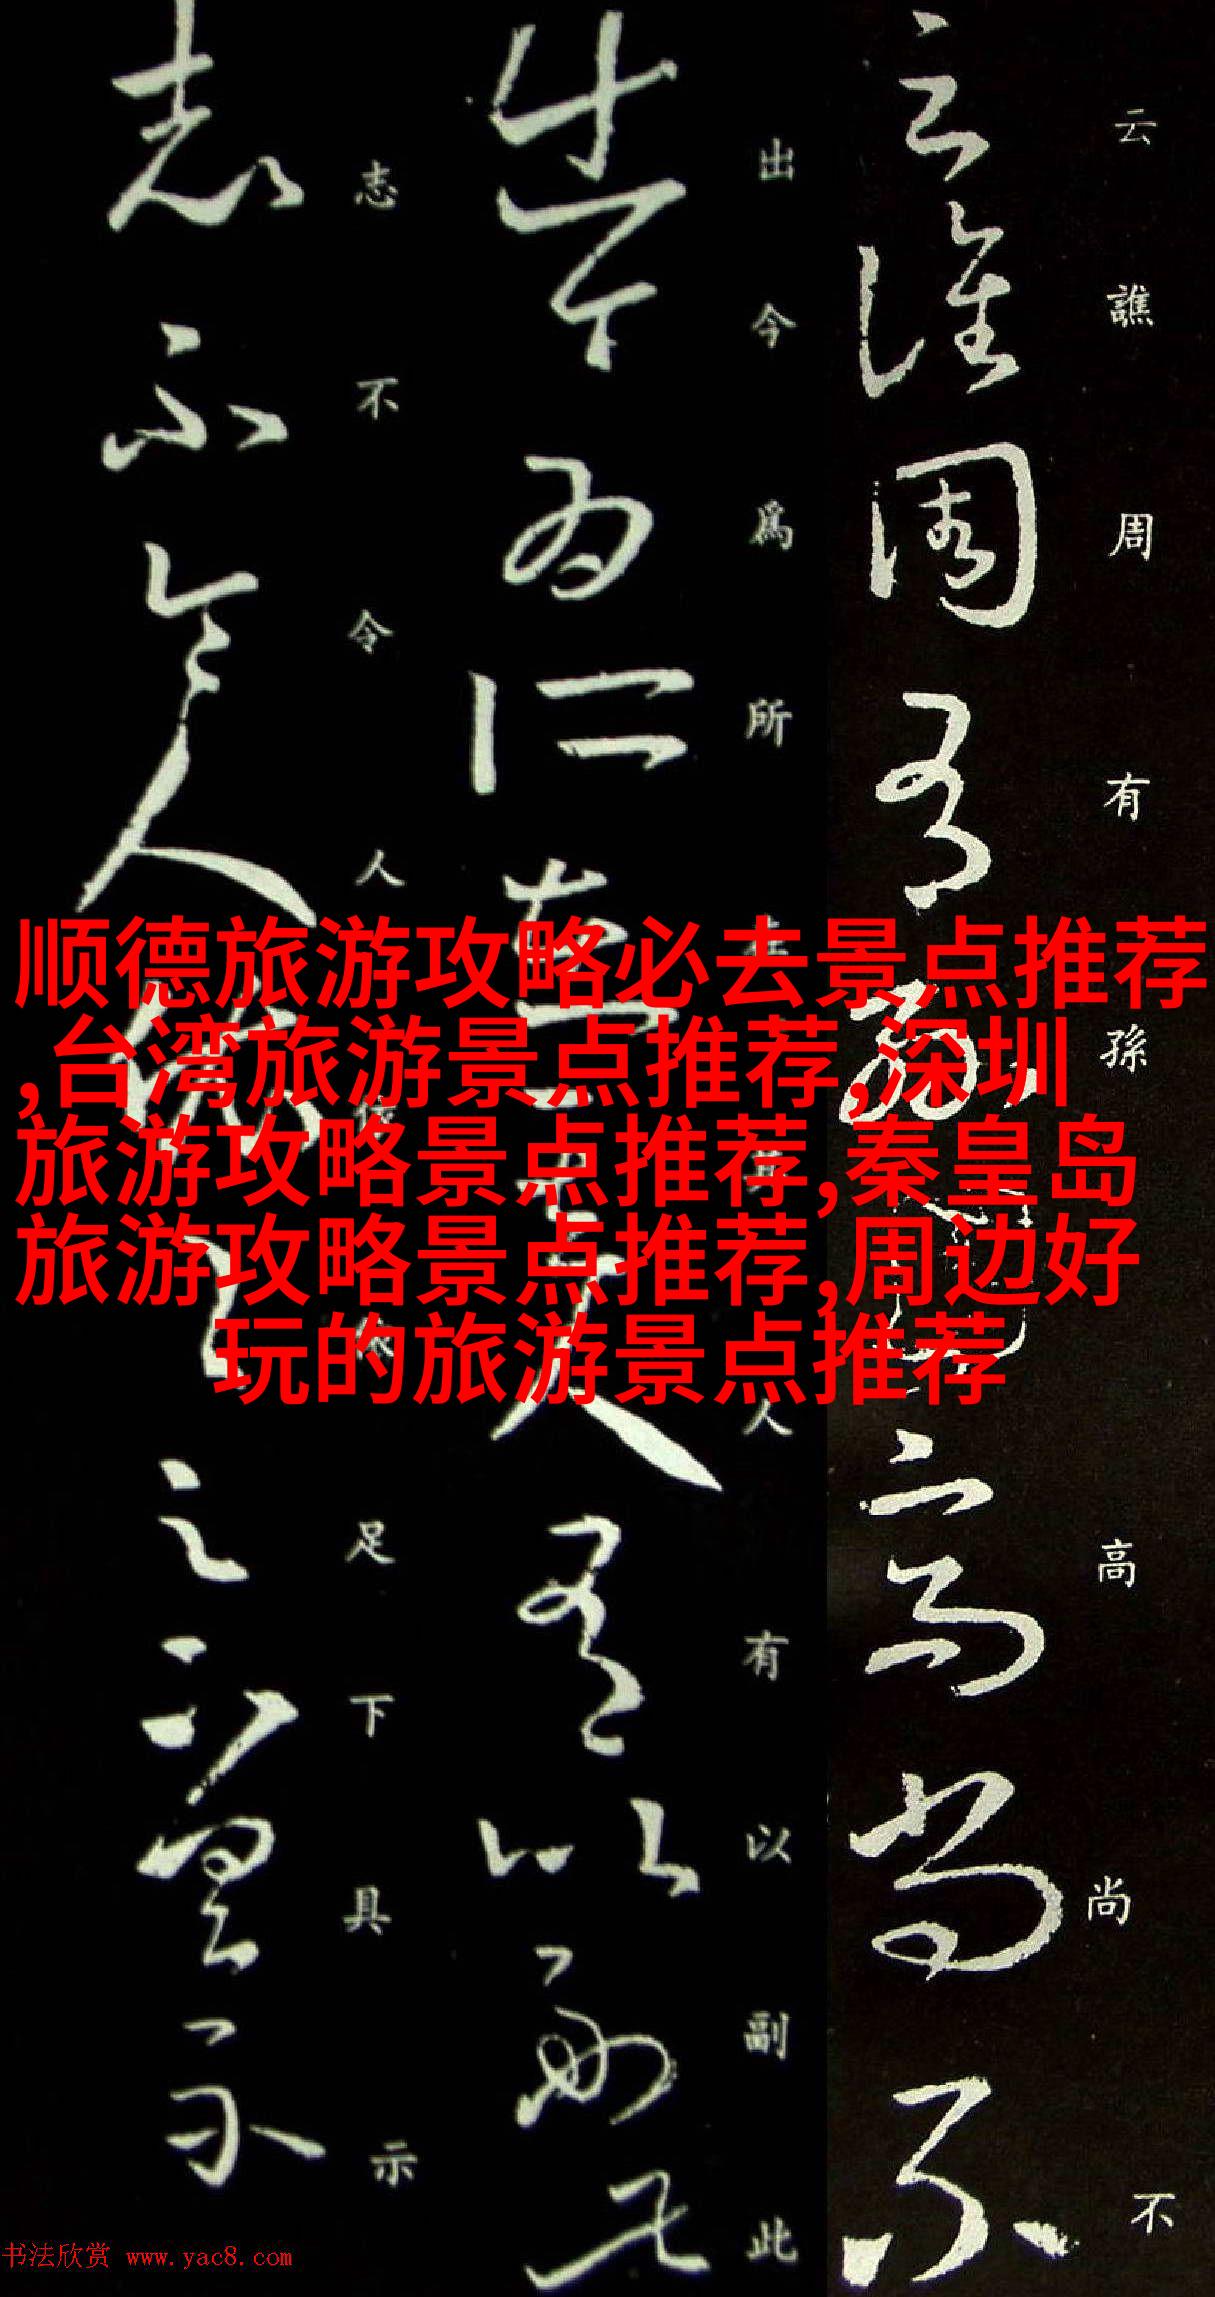 云譙周有孫高尚不
出今爲所在其人有以副此
志不令人依依足下具示
顺德旅游攻略必去景点推荐
,台湾旅游景点推荐,深圳
旅游攻略景点推荐,秦皇岛
旅游攻略景点推荐,周边好
玩的旅游景点推荐
书法欣赏 www.yac8.com